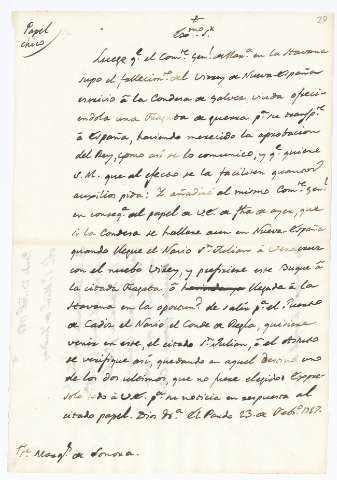 Papel
chico
Exmo. Sr.
Luego qe. el Comte. Genl. de Marna. en la Havana
supo el fallecimto. del Virrey de Nueva España
escrivió á la Condesa de Galvez viuda ofreci-
endola una Fragata de guerra pa. su transpte.
á España, haviendo merecido la aprobacion
del Rey, como asi se lo comunico, y qe. quiere
S.M. que al efecto se la faciliten quantos
auxilios pida: Y añadirá al mismo Comte. Genl.
en conseqa. del papel de VE. de fha de ayer, que
si la Condesa se hallare aun en Nueva España
quando llegue el Navio Sn. Julian á Veracruz
con el nuebo Virrey, y prefiriese este Buque á
la citada Fragata ó llegada á la
Havana en la oportund. de salir pa. el Puerto
de Cadiz el Navio el Conde de Regla, quisiere
venir en este, ó el citado Sn. Julian, á el efecto
se verifique asi, quedando en aquel destino uno
de los dos ultimos, que no fuere elegido: Expre-
solo todo á VE. pa. su noticia en respuesta al
citado papel. Dios gue. El Pardo 23 de Feb. 1787.
Sr. Marqs. de Sonora.